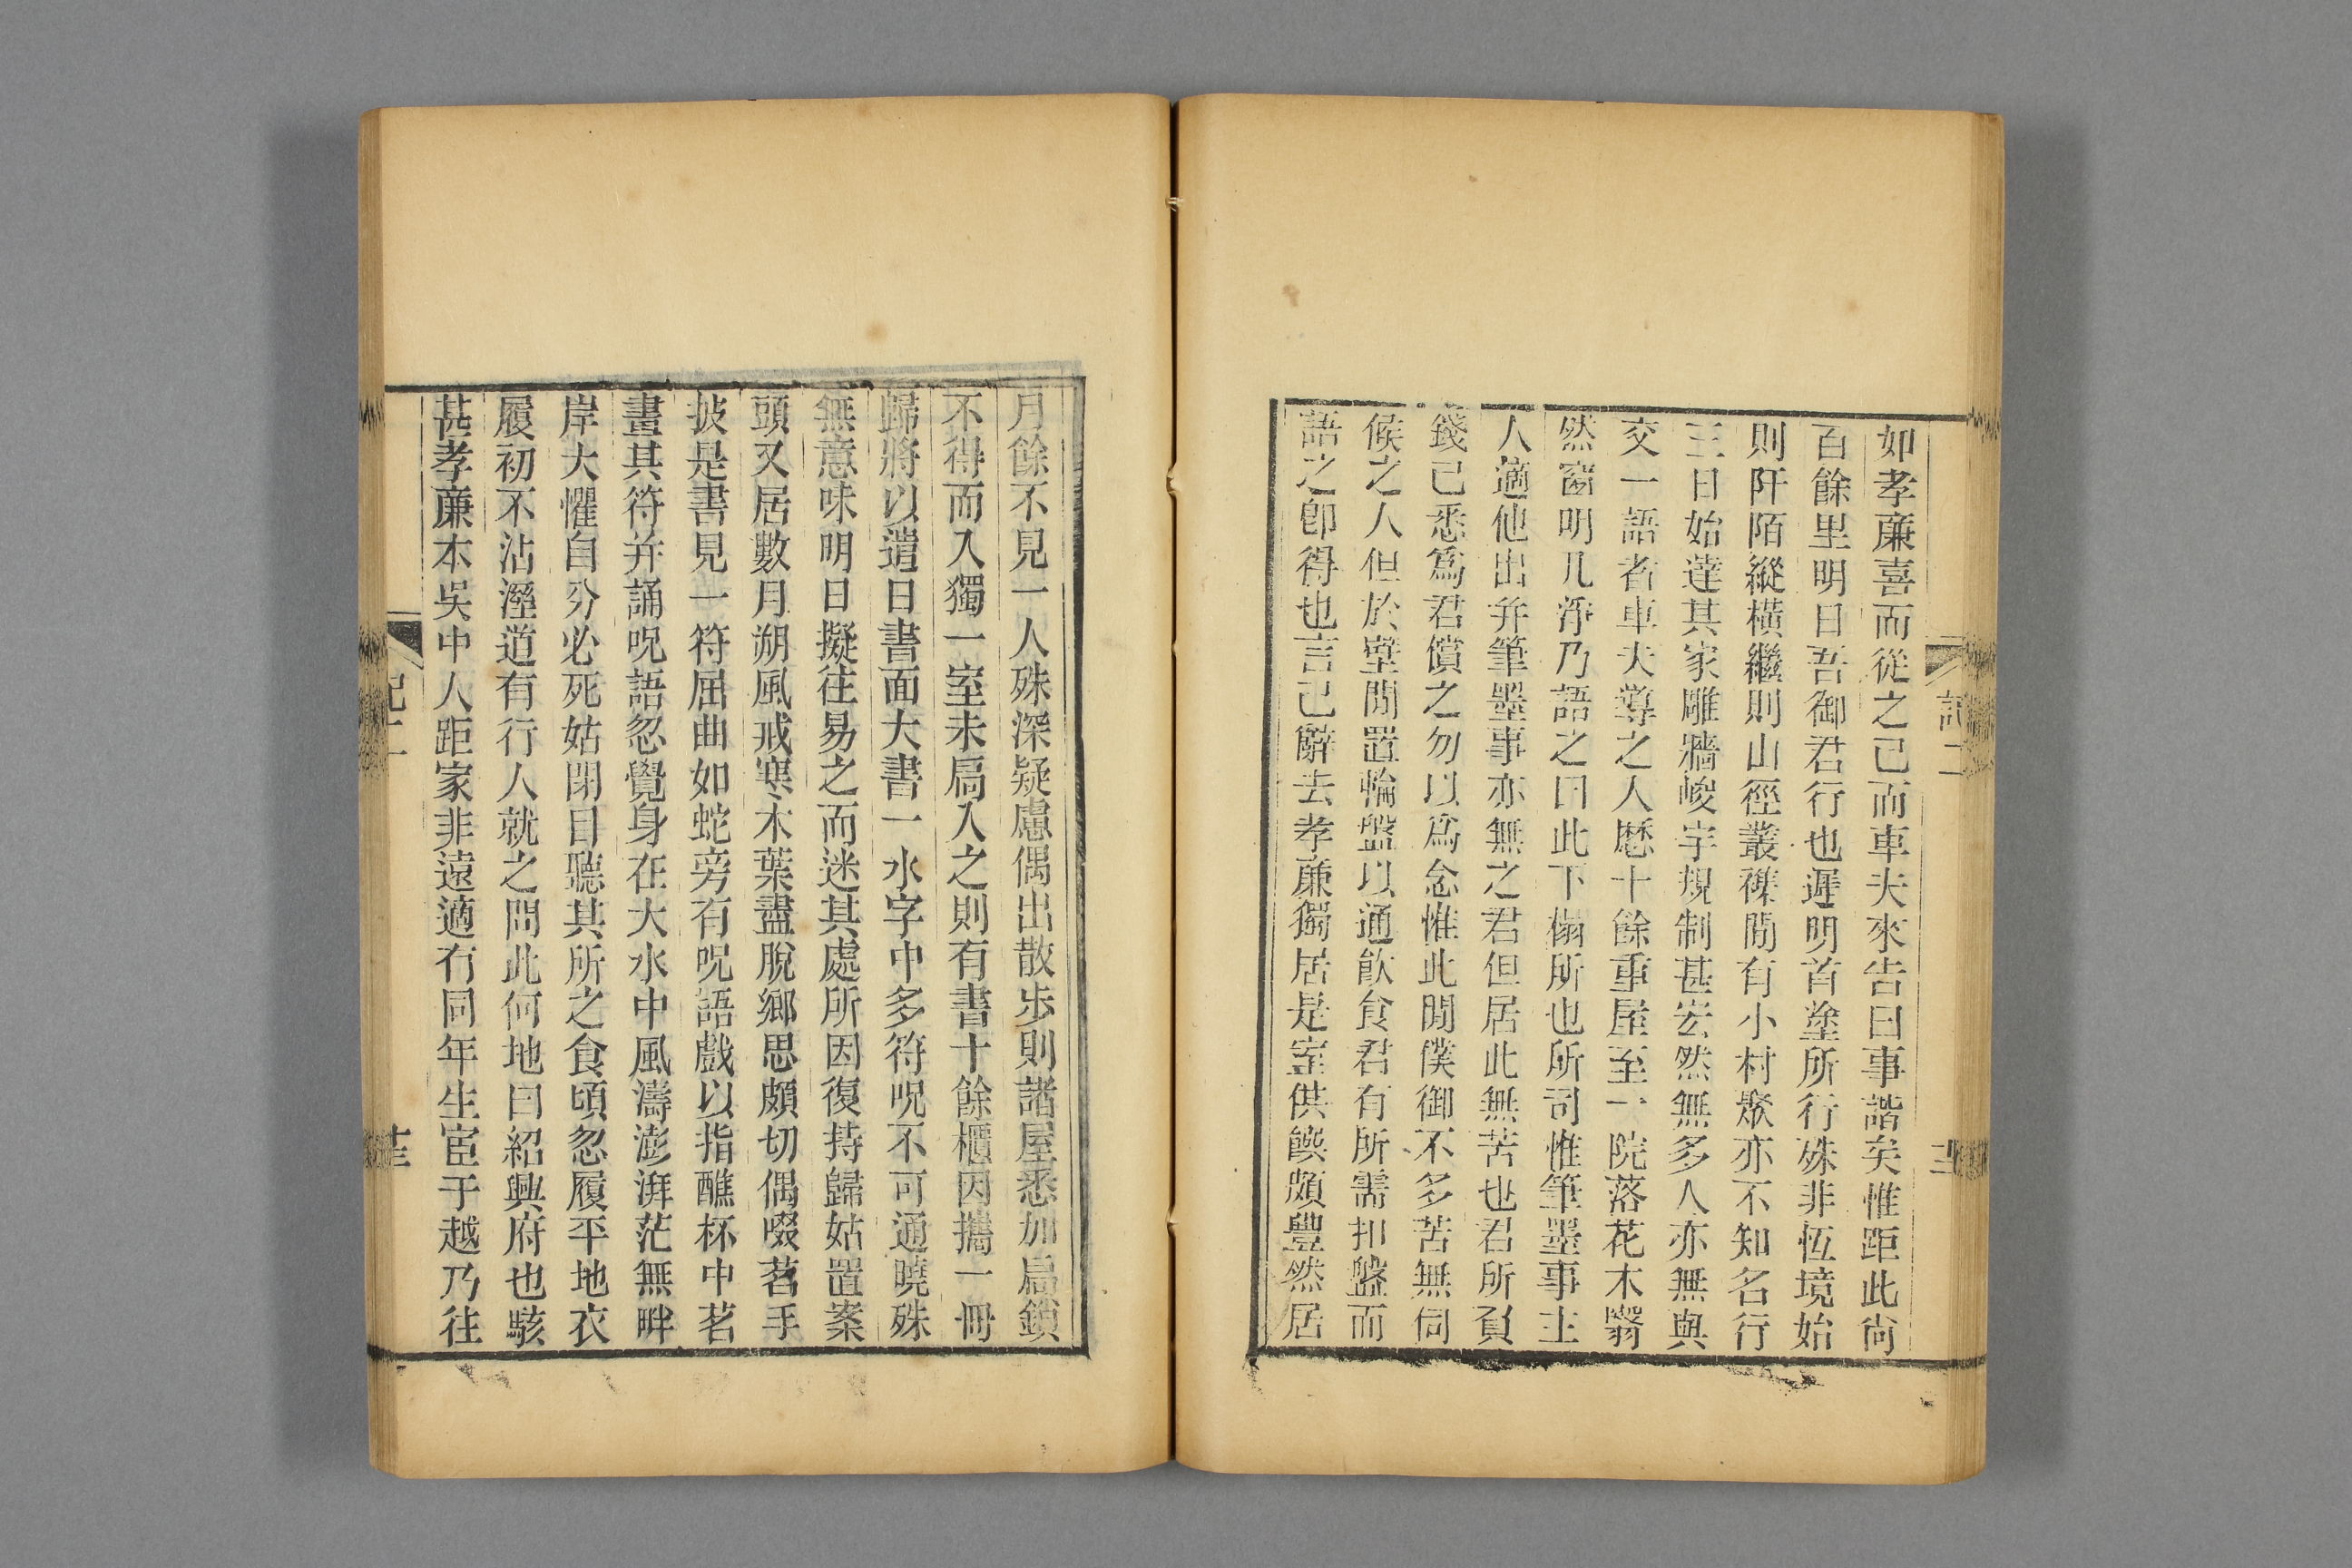 如孝廉喜而從之已而車夫來告曰事諧矣惟距此尙
百餘里明日吾御君行也遲明首塗所行殊非恆境始
則阡陌縱橫繼則山徑叢襍閒有小村聚亦不知名行
三日始達其家雕牆峻宇規制甚宏然無多人亦無與
交一語者車夫導之人歷十餘重屋至一院落花木翳
然窗明几淨乃語之曰此下榻所也所司惟筆墨事主
人適他出幷筆墨事亦無之君但居此無苦也君所負
錢已悉爲君償之勿以爲念惟此閒僕御不多苦無伺
候之人但於壁閒置輪盤以通飮食君有所需扣盤而
語之卽得也言已辭去孝廉獨居是室供饌頗豐然居
記二
月餘不見一人殊深疑慮偶出散步則諸屋悉加扃鎖
不得而入獨一室未扃入之則有書十餘櫃因攜一冊
歸將以遣日書面大書一水字中多符呪不可通曉殊
無意味明日擬往易之而迷其處所因復持歸姑置案
頭又居數月朔風戒寒木葉盡脫鄉思頗切偶啜茗手
披是書見一符屈曲如蛇旁有呪語戲以指醮杯中茗
畫其符幷誦呪語忽覺身在大水中風濤澎湃茫無畔
岸大懼自分必死姑閉目聽其所之食頃忽履平地衣
履初不沾溼道有行人就之問此何地曰紹興府也駭
甚孝廉本吳中人距家非遠適有同年生宦于越乃往